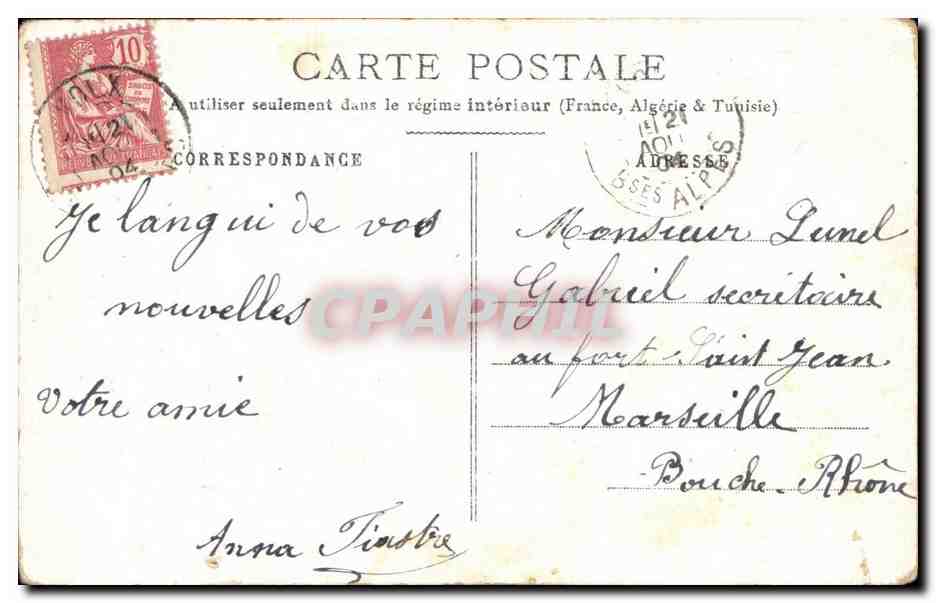 CARTE POSTALE
A utiliser seulement dans le régime intérieur (France, Algérie & Tunisie)
CORRESPONDANCE
ADRESSE
10
VOLX
1E 21
AOU
04
1E 21
AOU
04
BSES ALPES
Je langui de vos
nouvelles
votre amie
Anna Tiastre
Monsieur Lunel
Gabriel secritaire
au fort Saint Jean
Marseille
Bouche-Rhône
CPAPHIL